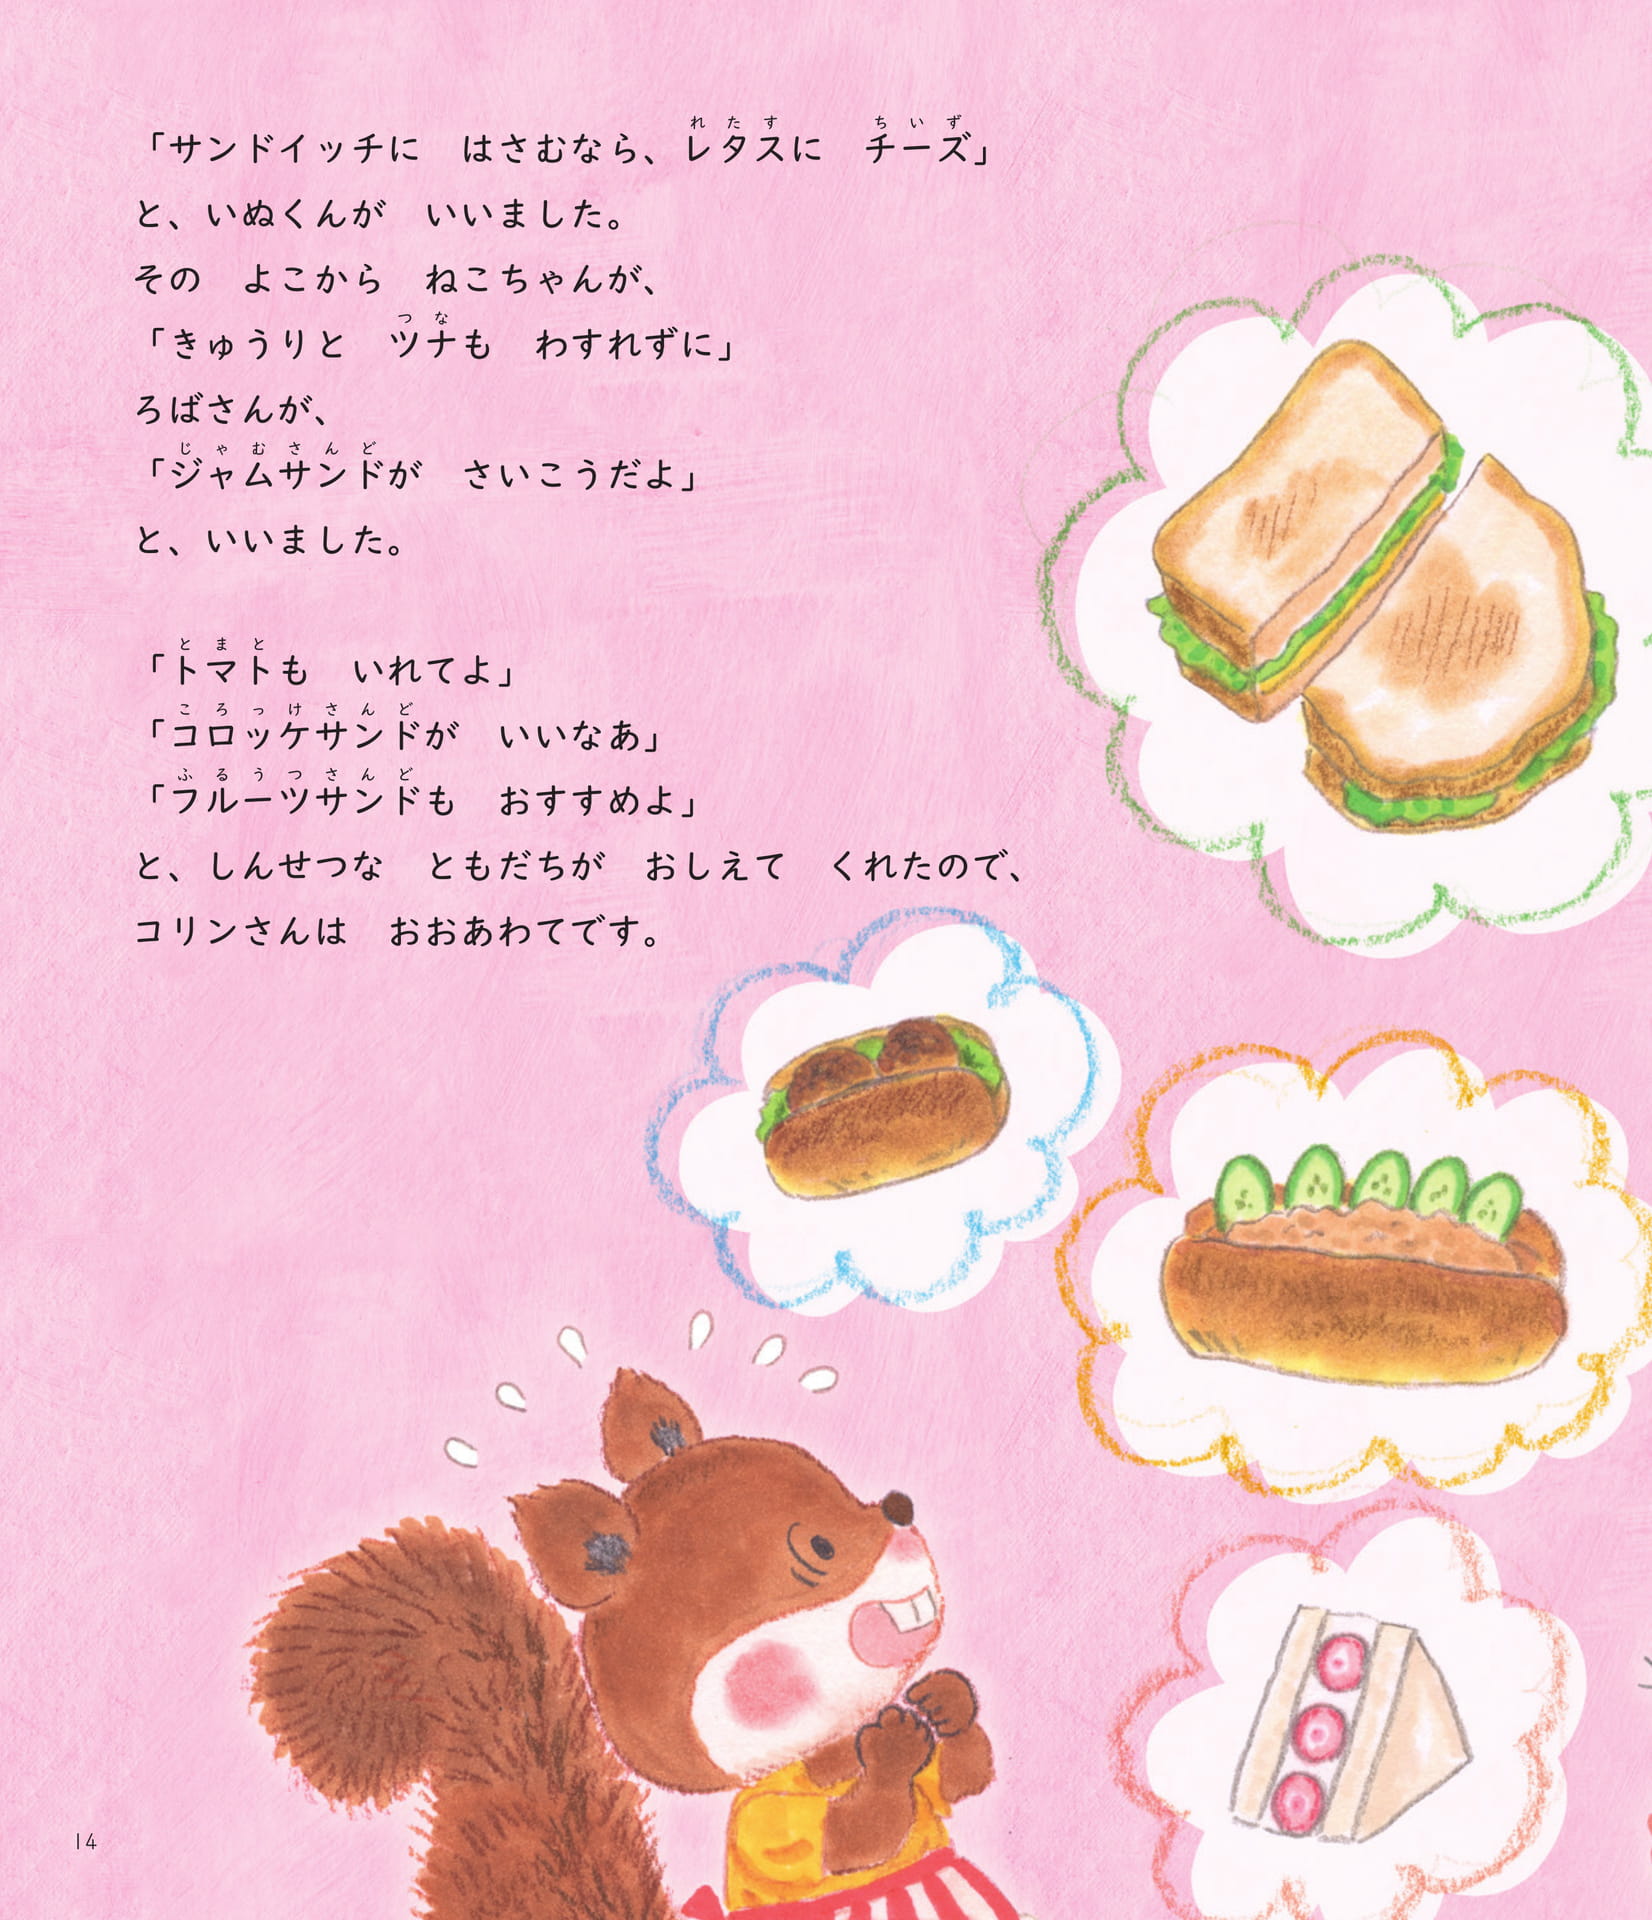 「サンドイッチに　はさむなら、レタスに　チーズ」
と、いぬくんが　いいました。
その　よこから　ねこちゃんが、
「きゅうりと　ツナも　わすれずに」
ろばさんが、
「ジャムサンドが　さいこうだよ」
と、いいました。
「トマトも　いれてよ」
「コロッケサンドが　いいなあ」
「フルーツサンドも　おすすめよ」
と、しんせつな　ともだちが　おしえて　くれたので、
コリンさんは　おおあわてです。
14